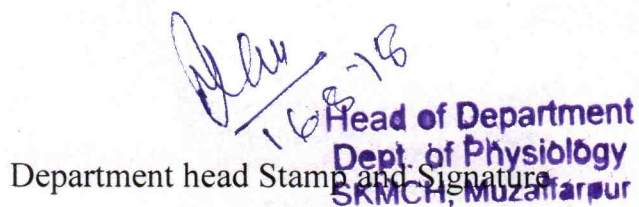 16-8-18
Head of Department
Dept. of Physiology
SKMCH, Muzaffarpur
Department head Stamp and Signature